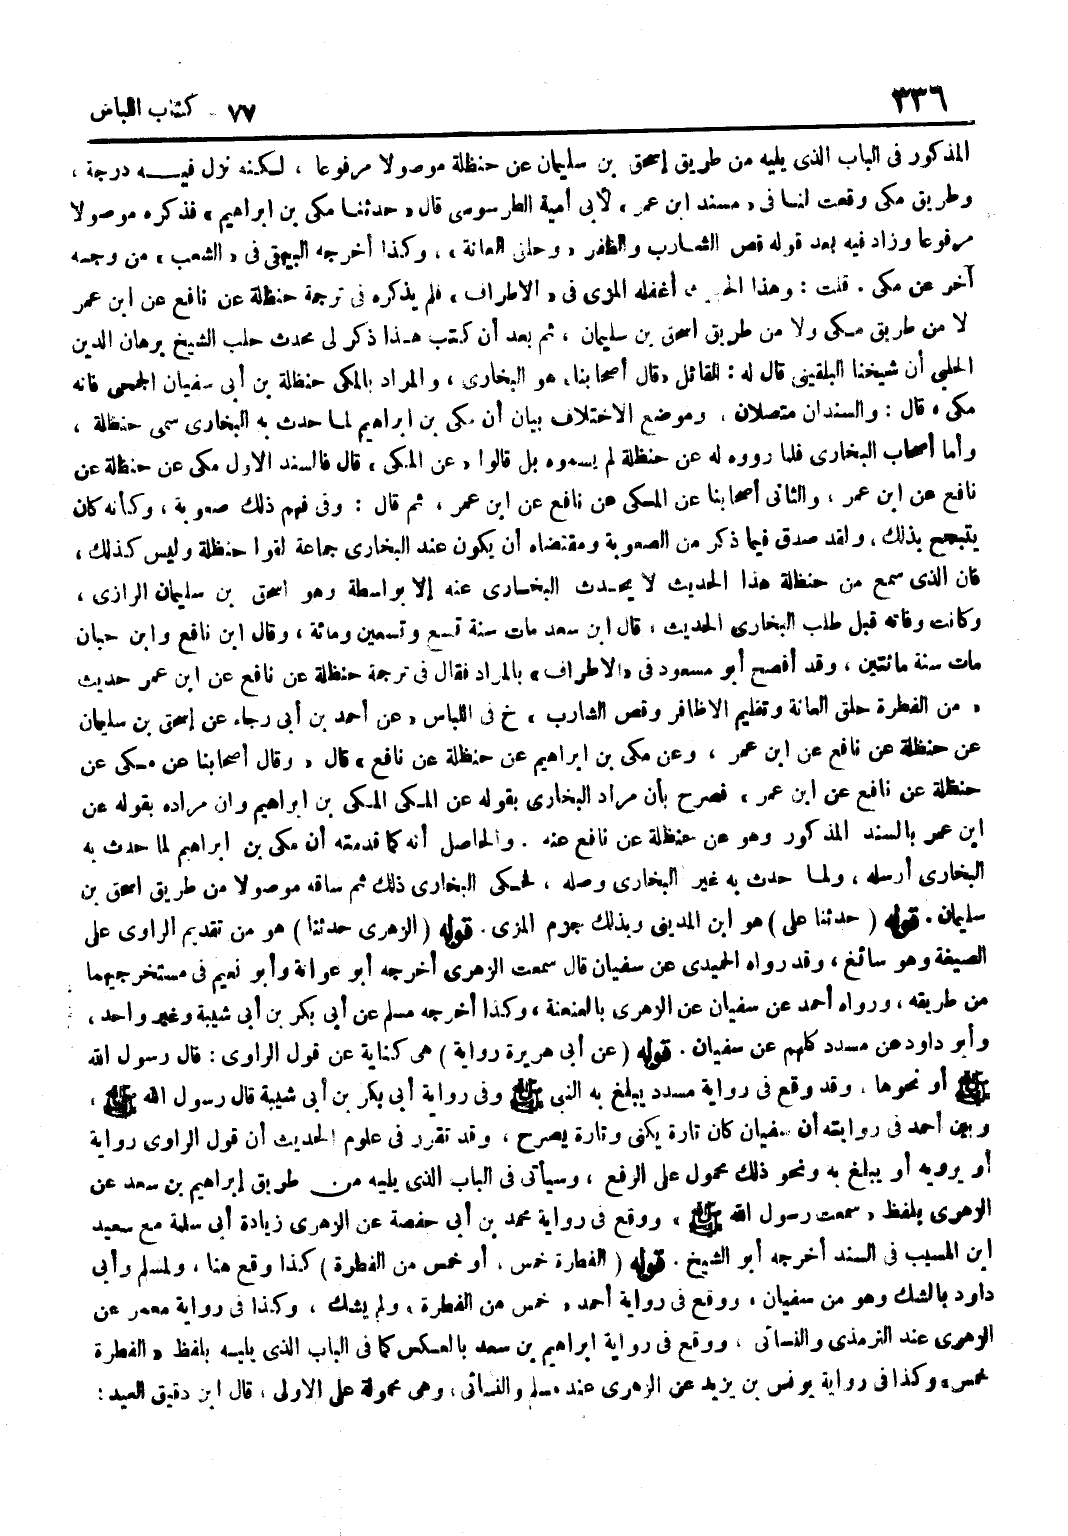 ٣٣٦
٧٧ - كتاب اللباس
المذكور فى الباب الذى يليه من طريق إسحق بن سليمان عن حنظلة موصولا مرفوعا ، لكنه نزل فيـــه درجة ،
وطريق مكى وقعت لنا فى « مسند ابن عمر ، لأبى أمية الطرسوسى قال « حدثنا مكى بن ابراهيم » فذكره موصولا
مرفوعا وزاد فيه بعد قوله قص الشارب والظفر « وحلق العانة » ، وكذا أخرجه البيهقى فى « الشعب » من وجه
آخر عن مكى . قلت : وهذا الحديث أغفله المزى فى « الاطراف » فلم يذكره فى ترجمة حنظلة عن نافع عن ابن عمر
لا من طريق مكى ولا من طريق اسحق بن سليمان ، ثم بعد أن كتبت هذا ذكر لى محدث حلب الشيخ برهان الدين
الحلبى أن شيخنا البلقينى قال له : القائل « قال أصحابنا » هو البخارى ، والمراد بالمكى حنظلة بن أبى سفيان الجمحى فانه
مكى ، قال : والسندان متصلان ، وموضع الاختلاف بيان أن مكى بن ابراهيم لما حدث به البخارى سمى حنظلة ،
وأما أصحاب البخارى فلما رووه له عن حنظلة لم يسموه بل قالوا « عن المكى » قال فالسند الاول مكى عن حنظلة عن
نافع عن ابن عمر ، والثانى أصحابنا عن المكى عن نافع عن ابن عمر ، ثم قال : وفى فهم ذلك صعوبة ، وكأنه كان
يتبجح بذلك ، ولقد صدق فيما ذكر من الصعوبة ومقتضاه أن يكون عند البخارى جماعة لقوا حنظلة وليس كذلك ،
فان الذى سمع من حنظلة هذا الحديث لا يحدث البخارى عنه إلا بواسطة وهو اسحق بن سليمان الرازى ،
وكانت وفاته قبل طلب البخارى الحديث ، قال ابن سعد مات سنة تسع وتسعين ومائة ، وقال ابن نافع وابن حبان
مات سنة مائتين ، وقد أفصح أبو مسعود فى « الاطراف » بالمراد فقال فى ترجمة حنظلة عن نافع عن ابن عمر حديث
« من الفطرة حلق العانة وتقليم الاظافر وقص الشارب ، خ فى اللباس « عن أحمد بن أبى رجاء عن إسحق بن سليمان
عن حنظلة عن نافع عن ابن عمر ، وعن مكى بن ابراهيم عن حنظلة عن نافع » قال « وقال أصحابنا عن مكى عن
حنظلة عن نافع عن ابن عمر ، فصرح بأن مراد البخارى بقوله عن المكى المكى بن ابراهيم وان مراده بقوله عن
ابن عمر بالسند المذكور وهو عن حنظلة عن نافع عنه . والحاصل أنه كما قدمته أن مكى بن ابراهيم لما حدث به
البخارى أرسله ، ولما حدث به غير البخارى وصله ، فحكى البخارى ذلك ثم ساقه موصولا من طريق اسحق بن
سليمان . قوله ( حدثنا على ) هو ابن المدينى وبذلك جزم المزى . قوله ( الزهرى حدثنا ) هو من تقديم الراوى على
الصيغة وهو سائغ ، وقد رواه الحميدى عن سفيان قال سمعت الزهرى أخرجه أبو عوانة وأبو نعيم فى مستخرجيهما
من طريقه ، ورواه أحمد عن سفيان عن الزهرى بالعنعنة ، وكذا أخرجه مسلم عن أبى بكر بن أبى شيبة وغير واحد ،
وأبو داود عن مسدد كلهم عن سفيان . قوله ( عن أبى هريرة رواية ) هى كناية عن قول الراوى : قال رسول الله
ﷺ أو نحوها ، وقد وقع فى رواية مسدد يبلغ به النبى ﷺ وفى رواية أبى بكر بن أبى شيبة قال رسول الله ﷺ ،
وبين أحمد فى روايته أن سفيان كان تارة يكنى وتارة يصرح ، وقد تقرر فى علوم الحديث أن قول الراوى رواية
أو يرويه أو يبلغ به ونحو ذلك محمول على الرفع ، وسيأتى فى الباب الذى يليه من طريق إبراهيم بن سعد عن
الزهرى بلفظ « سمعت رسول الله ﷺ » ووقع فى رواية محمد بن أبى حفصة عن الزهرى زيادة أبى سلمة مع سعيد
ابن المسيب فى السند أخرجه أبو الشيخ . قوله ( الفطرة خمس ، أو خمس من الفطرة ) كذا وقع هنا ، ولمسلم وأبى
داود بالشك وهو من سفيان ، ووقع فى رواية أحمد « خمس من الفطرة » ولم يشك ، وكذا فى رواية معمر عن
الزهرى عند الترمذى والنسائى ، ووقع فى رواية ابراهيم بن سعد بالعكس كما فى الباب الذى يليه بلفظ « الفطرة
خمس » وكذا فى رواية يونس بن يزيد عن الزهرى عند مسلم والنسائى ، وهى محمولة على الاولى ، قال ابن دقيق العيد :